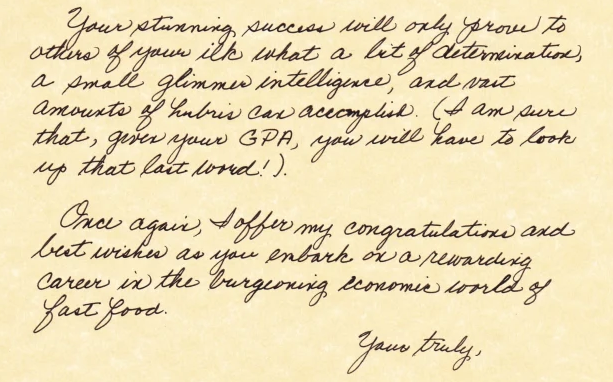 Your stunning success will only prove to
others of your ilk what a bit of determination,
a small glimmer intelligence, and vast
amounts of hubris can accomplish. (I am sure
that, given your GPA, you will have to look
up that last word!).
Once again, I offer my congratulations and
best wishes as you embark on a rewarding
career in the burgeoning economic world of
fast food.
Yours truly,